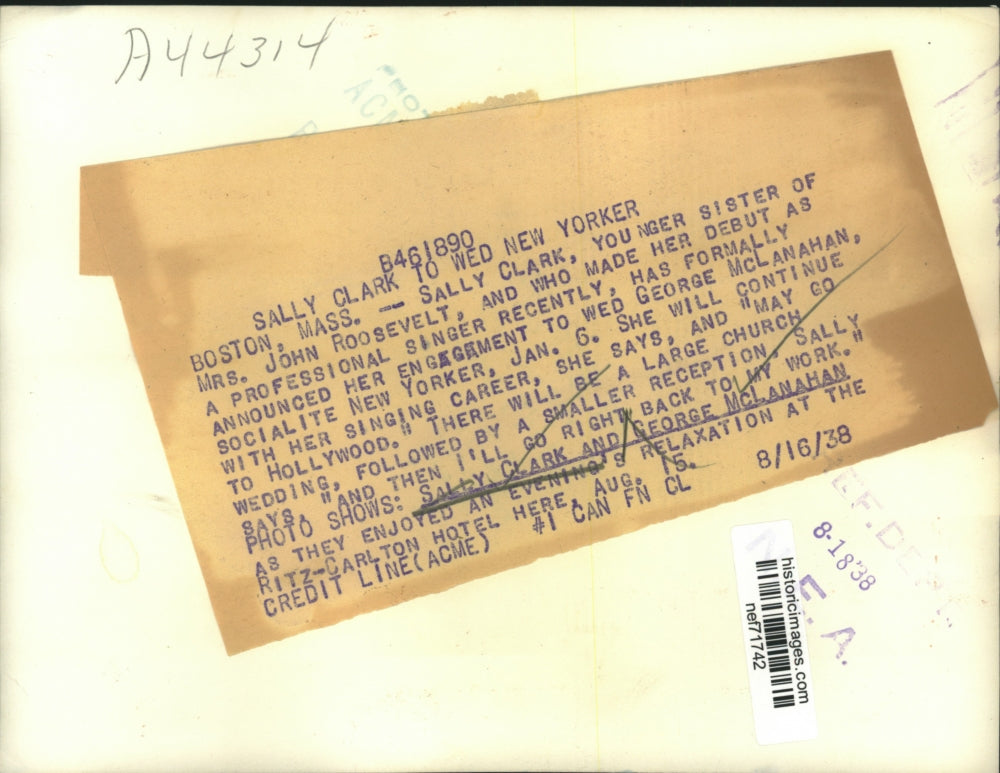 A44314
PHOT
ACM
B461890
SALLY CLARK TO WED NEW YORKER
BOSTON, MASS. -- SALLY CLARK, YOUNGER SISTER OF
MRS. JOHN ROOSEVELT, AND WHO MADE HER DEBUT AS
A PROFESSIONAL SINGER RECENTLY, HAS FORMALLY
ANNOUNCED HER ENGAGEMENT TO WED GEORGE MCLANAHAN,
SOCIALITE NEW YORKER, JAN. 6. SHE WILL CONTINUE
WITH HER SINGING CAREER, SHE SAYS, AND "MAY GO
TO HOLLYWOOD." THERE WILL BE A LARGE CHURCH
WEDDING, FOLLOWED BY A SMALLER RECEPTION, SALLY
SAYS, "AND THEN I'LL GO RIGHT BACK TO MY WORK."
PHOTO SHOWS: SALLY CLARK AND GEORGE MCLANAHAN
AS THEY ENJOYED AN EVENING'S RELAXATION AT THE
RITZ-CARLTON HOTEL HERE, AUG. 15.
CREDIT LINE(ACME) #1 CAN FN CL 8/16/38
REF. DEPT.
8-18'38
N. E. A.
historicimages.com
nef71742